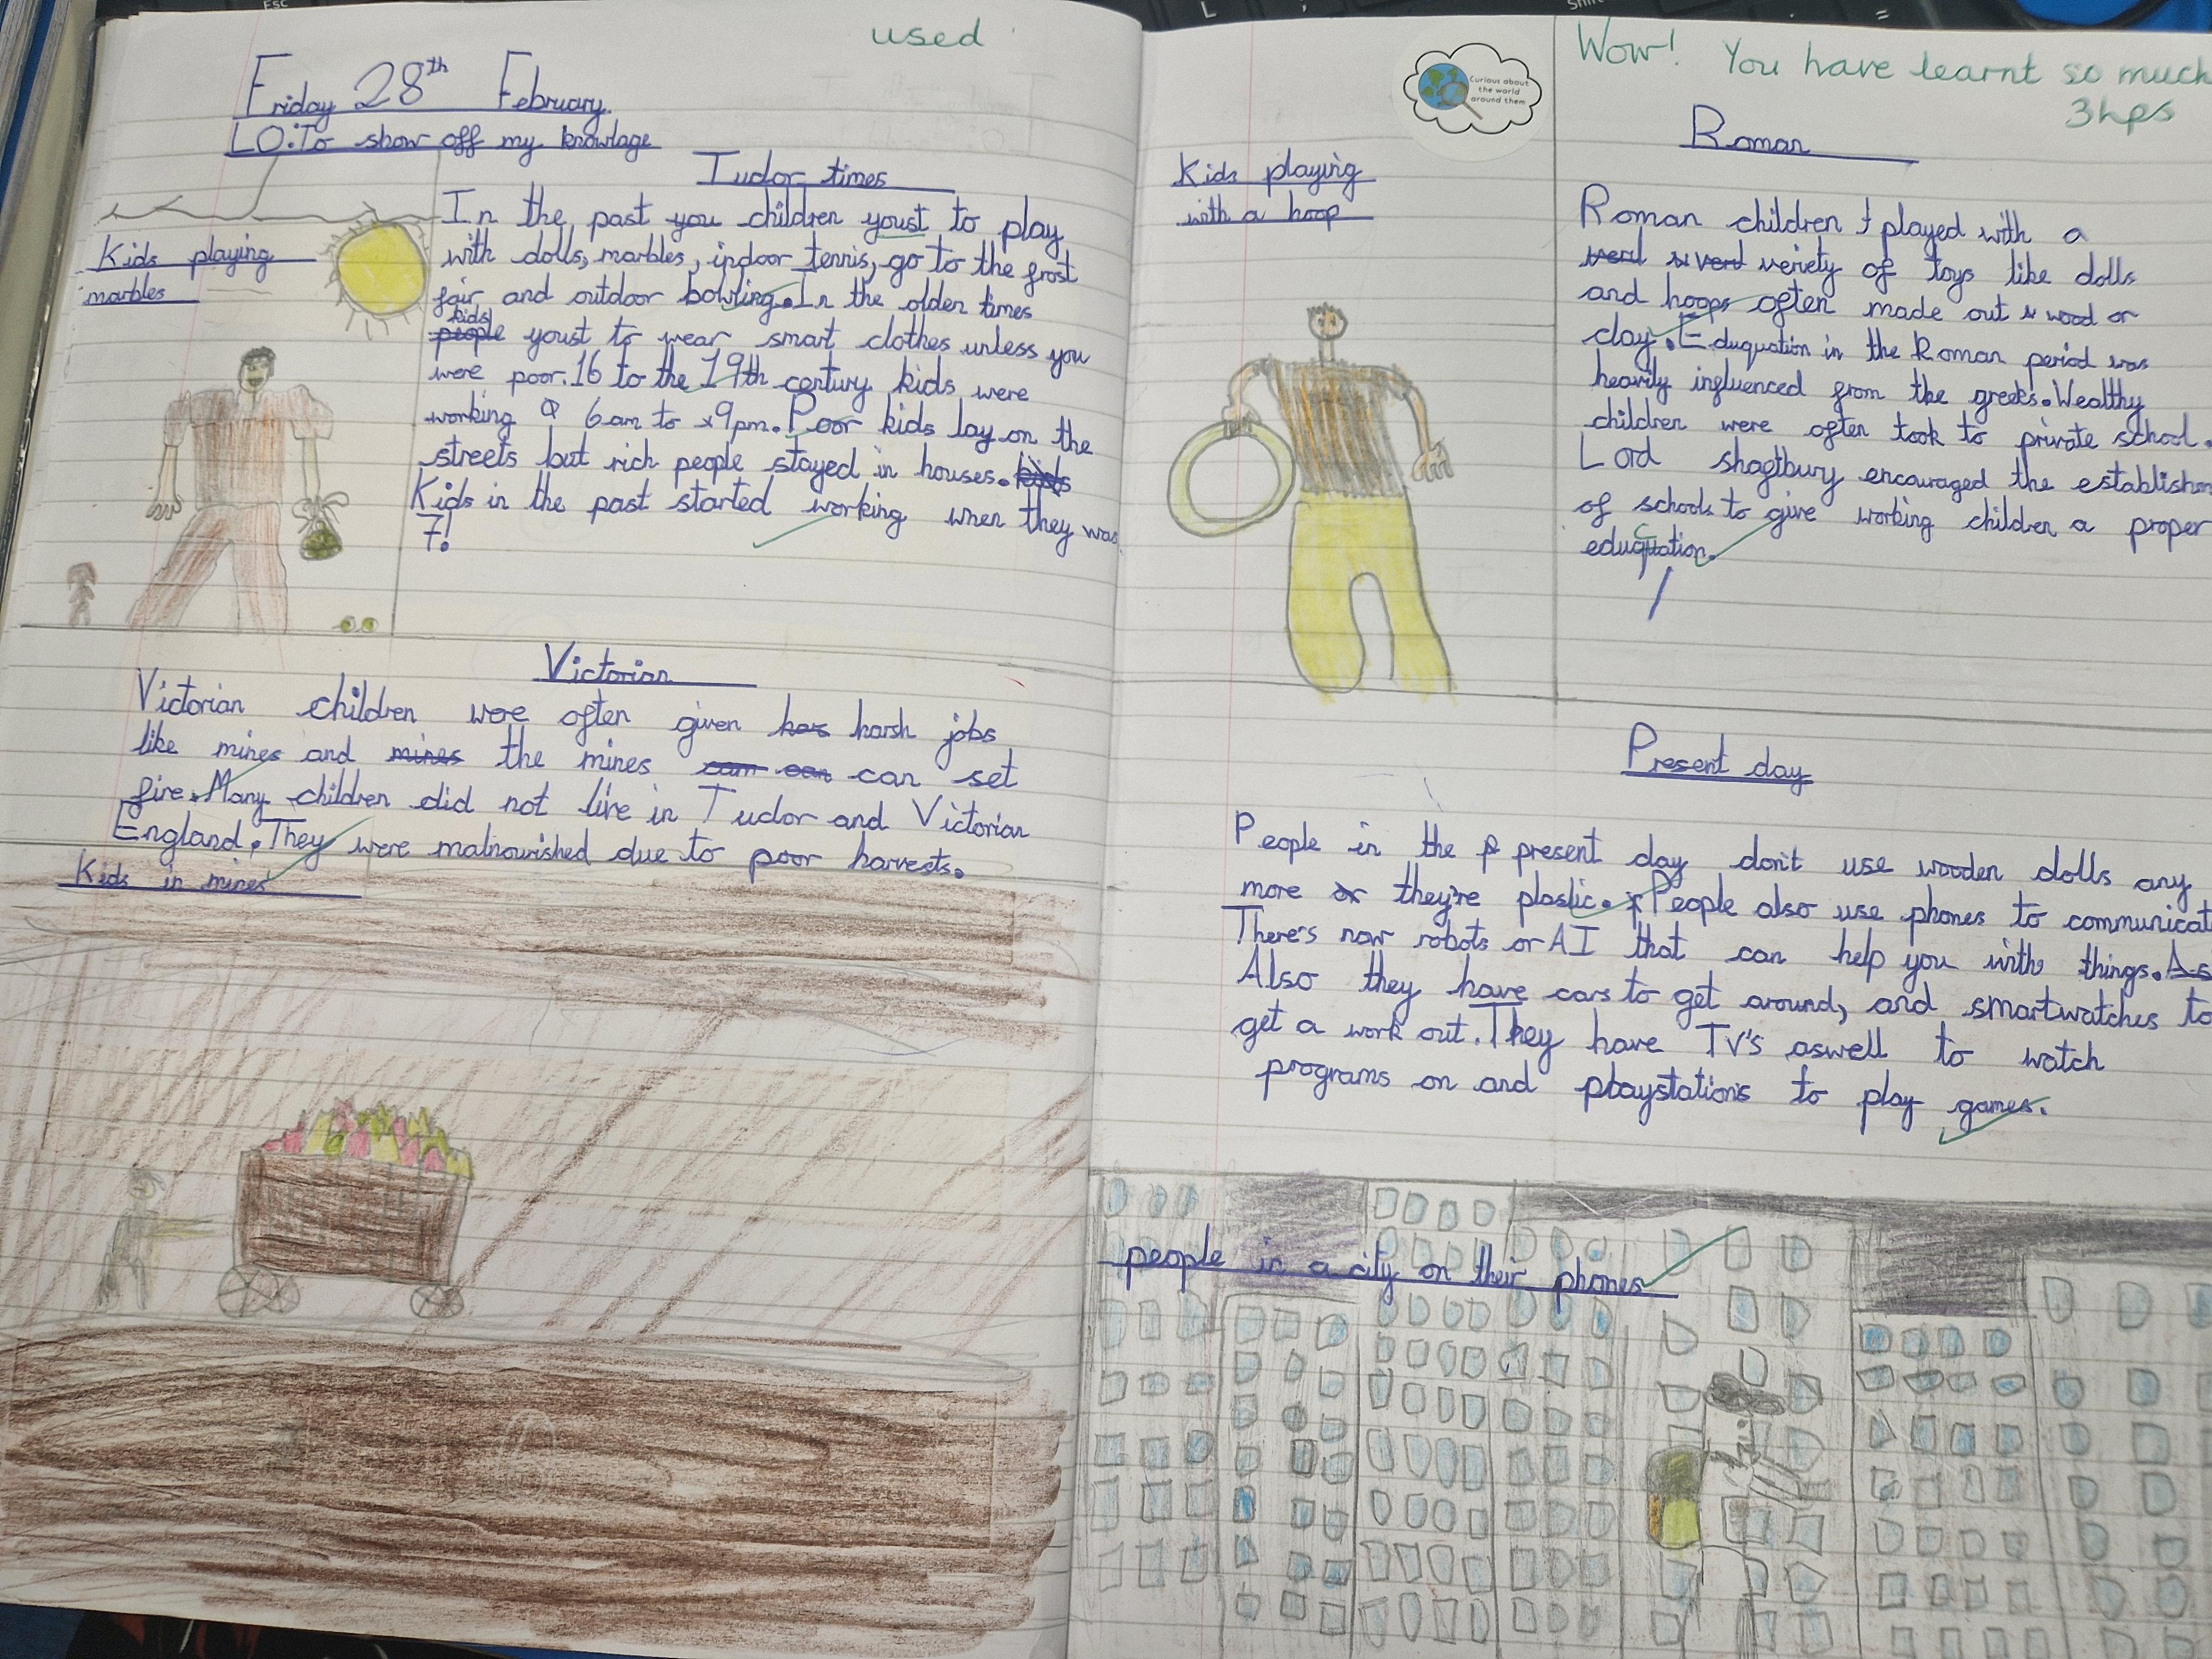 used
Friday 28th February.
LO:To show off my knowlage
Tudor times
Kids playing
marbles
In the past you children youst to play
with dolls, marbles, indoor tennis, go to the frost
fair and outdoor bowling. In the older times
kids
people youst to wear smart clothes unless you
were poor. 16 to the 19th century kids were
working 6am to 9pm. Poor kids lay on the
streets but rich people stayed in houses. kids
Kids in the past started working when they was
7!
Victorian
Victorian children were often given har harsh jobs
like mines and mines the mines cam can can set
fire. Many children did not live in Tudor and Victorian
England. They were malnourished due to poor harvests.
Kids in mines
Curious about
the world
around them
Wow! You have learnt so much
3hps
Roman
Kids playing
with a hoop
Roman children played with a
veriety of toys like dolls
and hoops often made out wood or
clay. Eduquation in the Roman period was
heavily influenced from the greeks. Wealthy
children were often took to private school.
Lord shagtbury encouraged the establishm
of schools to give working children a proper
c
eduquation.
Present day
People in the p present day don't use wooden dolls any
more they're plastic. People also use phones to communicat
There's now robots or AI that can help you with things. As
Also they have cars to get around, and smartwatches to
get a work out. They have TV's aswell to watch
programs on and playstations to play games.
people in a city on their phones
Esc
L
Shift
=